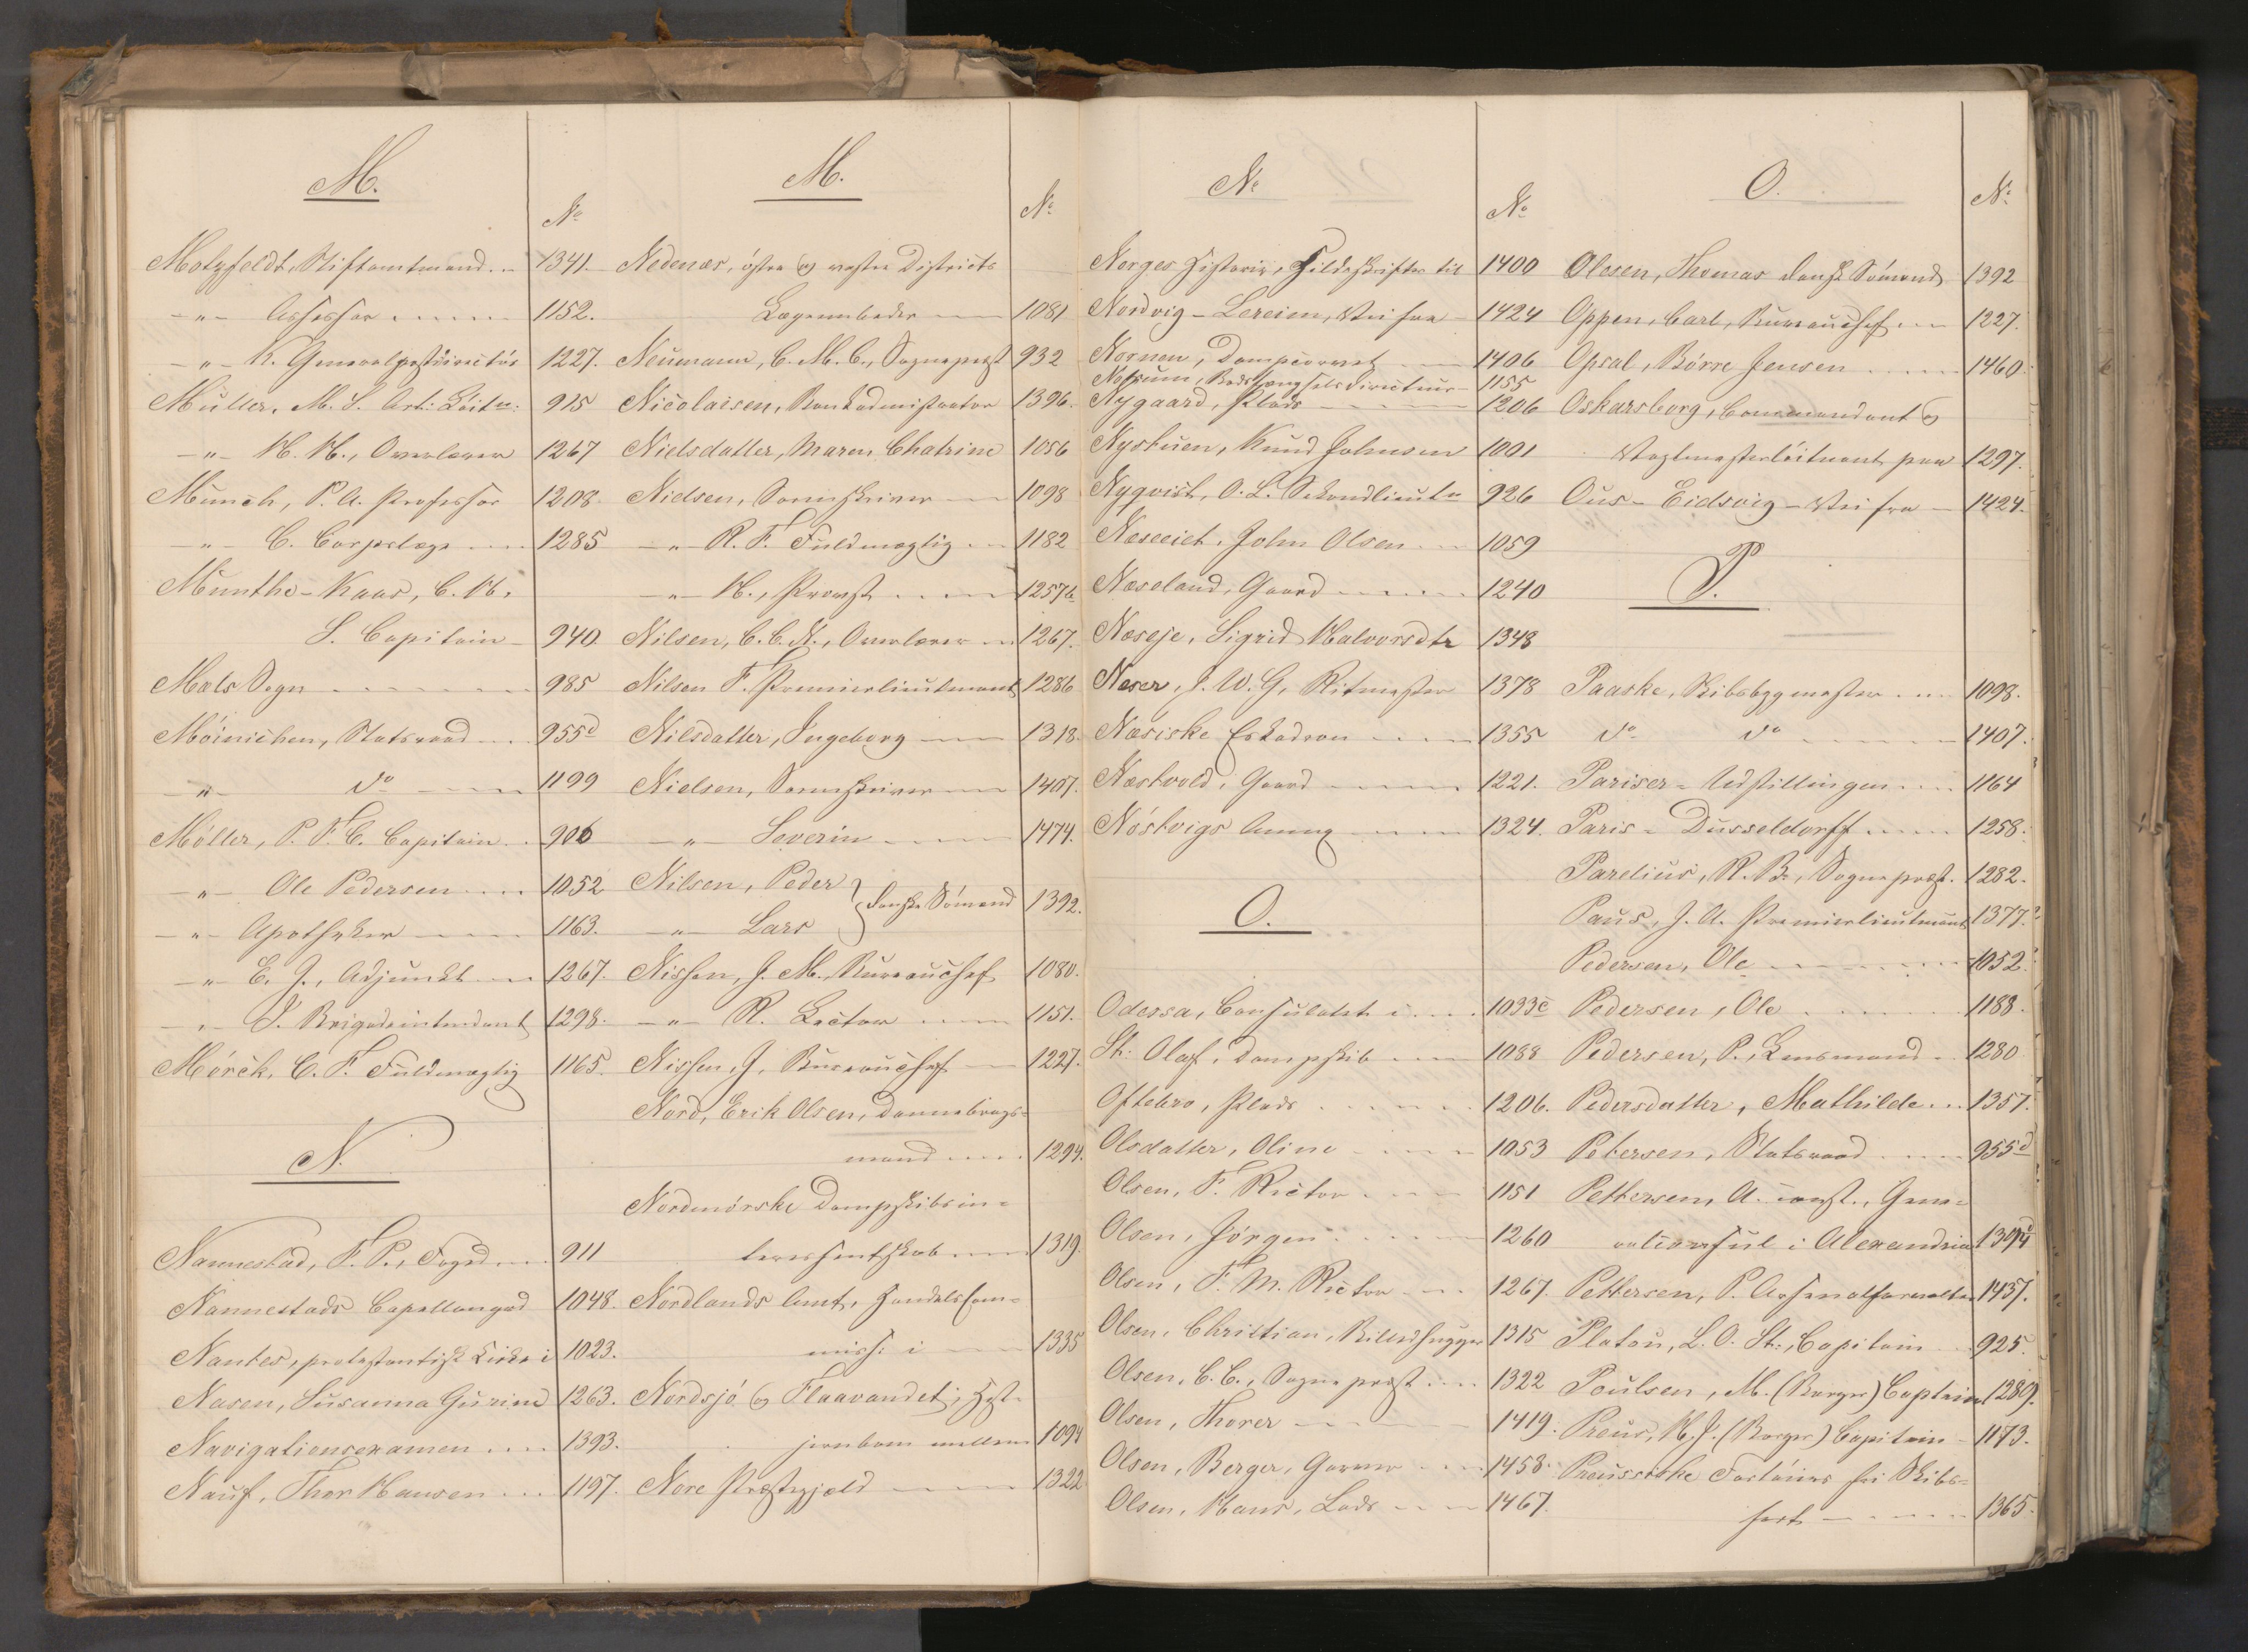 M.
No
Motzfeldt, Stiftamtmand 1341.
-"- Assessor 1152.
-"- K. Generalpostdirectör 1227.
Müller, M. S. Art: Löitn: 915
-"- H. H., Overlærer 1267
Munch, P. A. Professor 1208.
-"- C. Corpslæge 1285
Munthe-Kaas, C. H.
S. Capitain 940
Mæls Sogn 985
Möinichen, Statsraad 955d
-"- do 1199
Möller, P. F. C. Capitain 906
-"- Ole Pedersen 1052
-"- Apotheker 1163.
-"- E. J., Adjunkt 1267.
-"- J. Brigadeintendant 1298.
Mörch, C. F. Fuldmægtig 1165.
N.
Nannestad, F. P., Foged 911
Nannestads Capellangaard 1048.
Nantes, protestantisk Kirke i 1023.
Nasen, Susanna Gurine 1263.
Navigationsexamen 1393.
Nauf, Thor Hansen 1197.
M.
No
Nedenæs, östre og vestre Districts
Lægeembeder 1081
Neumann, C. M. C., Sogneprest 932
Nicolaisen, Bankadministrator 1396.
Nielsdatter, Maren Chatrine 1056
Nielsen, Sorenskriver 1098
-"- R. F. Fuldmægtig 1182
-"- H., Provst 1257b
Nilsen, C. C. N., Overlærer 1267.
Nilsen F. Premierlieutenant 1286
Nilsdatter, Ingeborg 1318.
Nielsen, Sorenskriver 1407.
-"- Severin 1474.
Nilsen, Peder
-"- Lars } danske Sömænd 1392.
Nissen, J. M. Bureauchef 1080.
-"- R. Rector 1151.
Nissen, J. Bureauchef 1227.
Nord, Erik Olsen, Dannebrogs-
mand 1294.
Nordmörske Dampskibsin-
teressentskab 1319.
Nordlands Amt, Handelscom-
miss: i 1335
Nordsjö og Flaavandet, Hest-
jernbane mellem 1094
Nore Præstegjeld 1322
N.
No
Norges Historie, Kildeskrifter til 1400
Nordvig-Lereien, Vei fra 1424
Nornen, Dampcorvet 1406
Nossum, Bodsfængselsdirecteur 1155
Nygaard, Plads 1206
Nystuen, Knud Johnsen 1001
Nyqvist, O. L. Sekondlieutn 926
Næseeiet, John Olsen 1059
Næseland, Gaard 1240
Næseje, Sigrid Halvorsdtr 1348
Neser, J. W. G, Ritmester 1378
Næsiske Eskadron 1355
Næstvold, Gaard 1221.
Nöstvigs Anneg 1324.
O.
Odessa, Consulatet i 1033c
St: Olaf, Dampskib 1088
Oftebro, Plads 1206.
Olsdatter, Oline 1053
Olsen, F. Rector 1151
Olsen, Jörgen 1260
Olsen, F. M. Rector 1267.
Olsen, Christian, Billedhugger 1315
Olsen, C. C., Sogneprest 1322
Olsen, Thorer 1419.
Olsen, Berger, Garver 1458.
Olsen, Hans, Lods 1467.
O.
No
Olesen, Thomas dansk Sömand 1392
Oppen, Carl, Bureauchef 1227.
Opsal, Börre Jensen 1460
Oskarsborg, Commandant og
Vagtmesterlöitnant paa 1297.
Ous-Eidsvig-Vei fra 1424.
P.
Paaske, Skibsbygmester 1098.
do do 1407.
Pariser-Udstillingen 1164
Paris-Dusseldorff 1258.
Parelius, R. B., Sogneprest. 1282.
Paus, J. A. Premierlieutenant 1377.
Pedersen, Ole 1052
Pedersen, Ole 1188.
Pedersen, P., Lensmand 1280
Pedersdatter, Mathilde 1357.
Petersen, Statsraad 955d
Pettersen, A. const., Gene-
ralconsul i Alexandria 1304
Pettersen, P. Arsenalforvalter 1437.
Platou, L. O. St:, Capitain 925.
Poulsen, M. (Borger) Captein 1289.
Preus, H. J. (Borger) Capitain 1173.
Preussiske Fartöiers fri Skibs-
fart 1365.